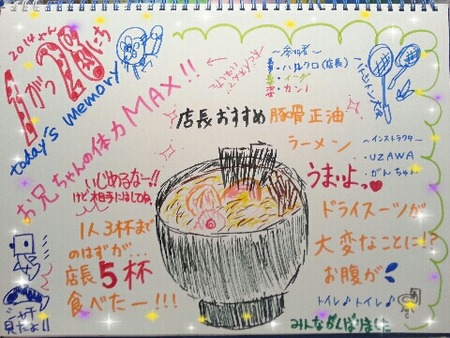 2014ねん
1がつ26にち
today's memory
お兄ちゃんの体力MAX!!
～参加者～
ハルクロ(店長)
イーダ
カン!
バドミントン大会
店長おすすめ豚骨正油
ラーメン
うまいよっ
～インストラクター～
UZAWA
がんちゃん
いじめるなー!!
けど相手にはしてね。
1人3杯まで
のはずが…
店長5杯
食べたー!!!
ドライスーツが
大変なことに!?
お腹が
トイレ♪トイレ♪
みんながんばりました
見たよ!!